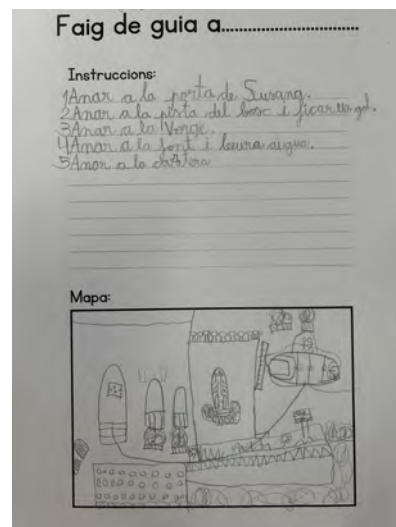 Faig de guia a..............................
Instruccions:
1Anar a la porta de Susana.
2Anar a la pista del bosc i ficar un gol.
3Anar a la Verge.
4Anar a la font i beura aigua.
5Anar a la
Mapa: